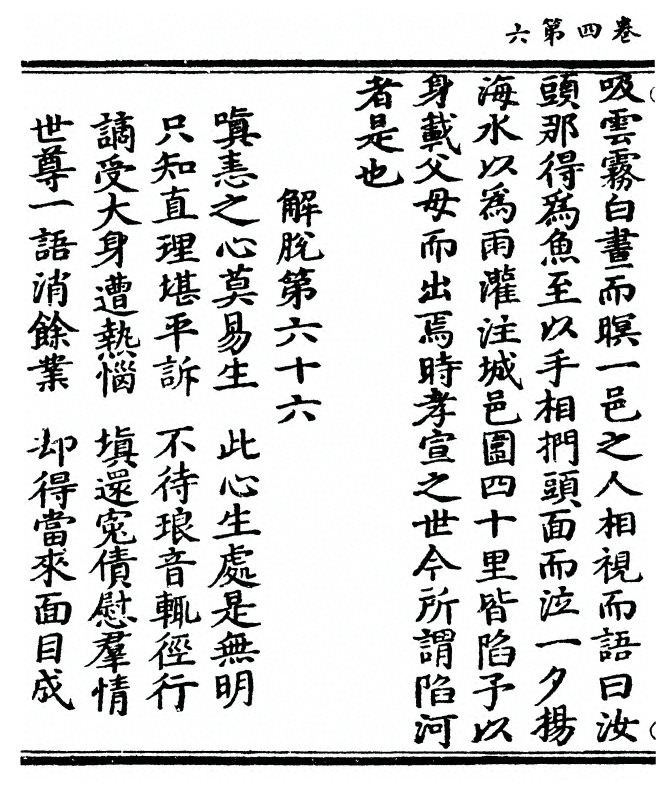 卷四第六
吸雲霧白晝而暝一邑之人相視而語曰汝
頭那得為魚至以手相捫頭面而泣一夕揚
海水以為雨灌注城邑圜四十里皆陷予以
身載父母而出焉時孝宣之世今所謂陷河
者是也
解脫第六十六
嗔恚之心莫易生　此心生處是無明
只知直理堪平訴　不待琅音輒徑行
謫受大身遭熱惱　填還冤債慰羣情
世尊一語消餘業　却得當來面目成